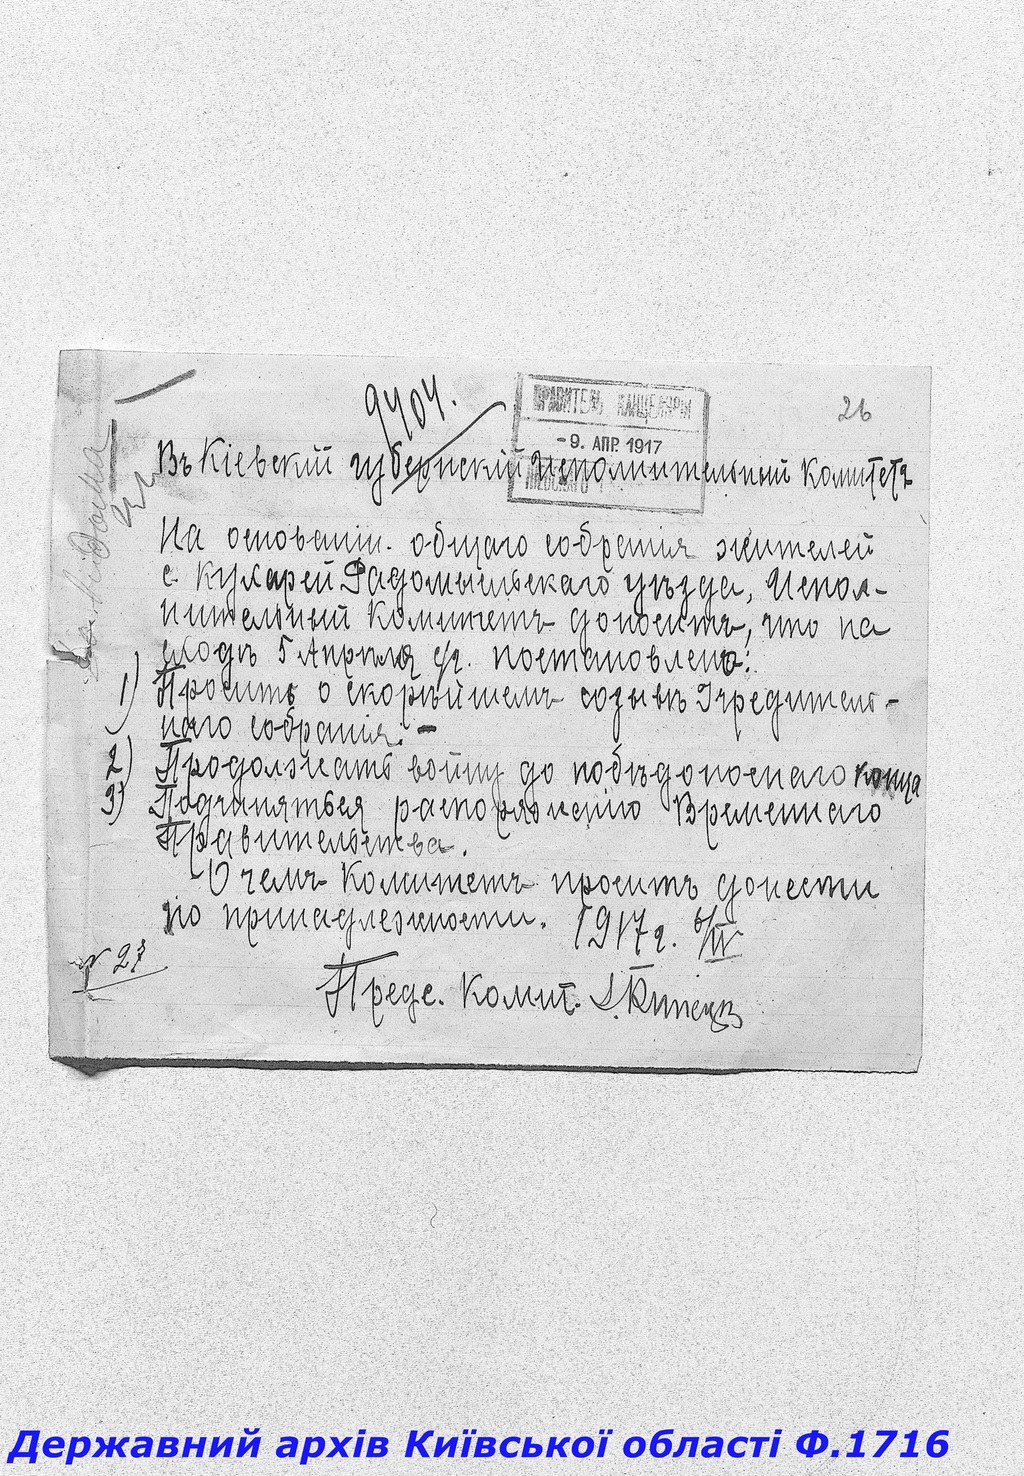 9404.
ПРАВИТЕЛЬ КАНЦЕЛЯРИ
- 9. АПР. 1917
26
Въ Кіевскій губернскій Исполнительный Комитетъ
На основаніи общаго собранія жителей
с. Кухарей Радомысльскаго уѣзда, Испол-
нительный Комитетъ доноситъ, что на
сходѣ 5 Апрѣля с/г. постановлено:
1) Просить о скорѣйшемъ созывѣ Учредитель-
наго собранія. -
2) Продолжать войну до побѣдоноснаго конца
3) Подчиняться распоряженію Временнаго
Правительства.
О чемъ Комитетъ проситъ донести
по принадлежности. 1917 г. 6/IV
№ 23
Предс. Комит.
Державний архів Київської області Ф.1716